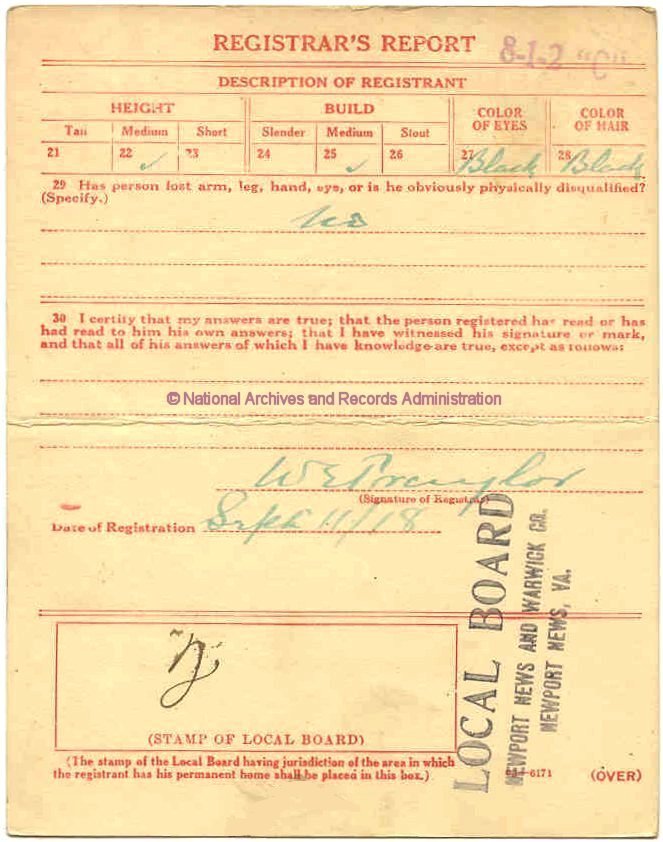 REGISTRAR'S REPORT
8-1-2 "C"
DESCRIPTION OF REGISTRANT
HEIGHT BUILD COLOR OF EYES COLOR OF HAIR
Tall Medium Short Slender Medium Stout
21 22 ✓ 23 24 25 ✓ 26 27 Black 28 Black
29 Has person lost arm, leg, hand, eye, or is he obviously physically disqualified?
(Specify.)
No
30 I certify that my answers are true; that the person registered has read or has
had read to him his own answers; that I have witnessed his signature or mark,
and that all of his answers of which I have knowledge are true, except as follows:
© National Archives and Records Administration
W E
(Signature of Registrar)
Date of Registration Sept 11/18
LOCAL BOARD
NEWPORT NEWS AND WARWICK CO.
NEWPORT NEWS, VA.
(STAMP OF LOCAL BOARD)
(The stamp of the Local Board having jurisdiction of the area in which
the registrant has his permanent home shall be placed in this box.)
03-6171 (OVER)